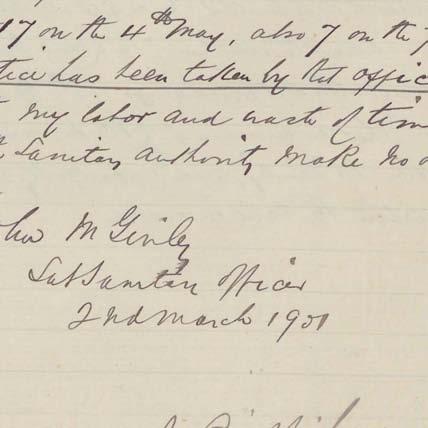 17 on the 4th May, also 7 on the
tice has been taken by the offic
my labor and waste of tim
Sanitary Authority make no
John McGinley
SubSanitary Officer
2nd March 1901